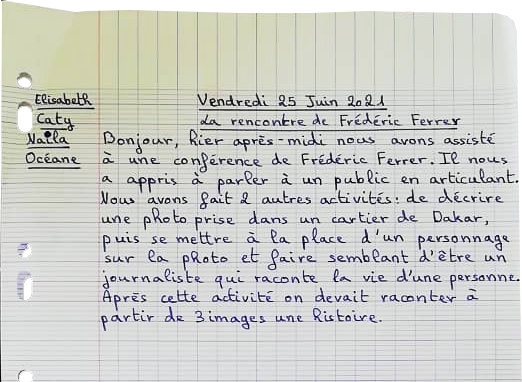 Elisabeth
Caty
Naïla
Océane
Vendredi 25 Juin 2021
La rencontre de Frédéric Ferrer
Bonjour, hier après-midi nous avons assisté
à une conférence de Frédéric Ferrer. Il nous
a appris à parler à un public en articulant.
Nous avons fait 2 autres activités: de décrire
une photo prise dans un cartier de Dakar,
puis se mettre à la place d'un personnage
sur la photo et faire semblant d'être un
journaliste qui raconte la vie d'une personne.
Après cette activité on devait raconter à
partir de 3 images une histoire.